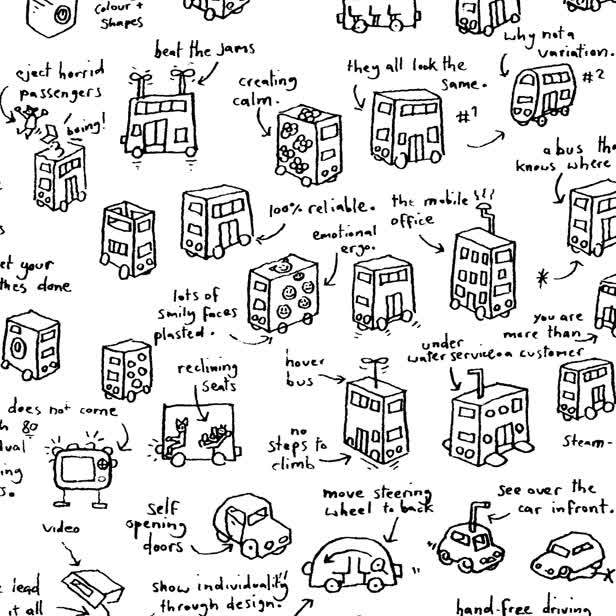 colour +
shapes
beat the jams
eject horrid
passengers
boing!
creating
calm.
they all look the
same.
#1
why not a
variation.
#2
a bus tha
knows where
100% reliable.
emotional
ergo.
the mobile
office
*
et your
thes done
lots of
smily faces
plasted.
you are
more than
a customer
under
water service.
reclining
seats
hover
bus
no
steps to
climb
does not come
h 80
dual
ing
s.
steam-
video
self
opening
doors
move steering
wheel to back
see over the
car infront.
e lead
it all
show individuality
through design.
hand-free driving